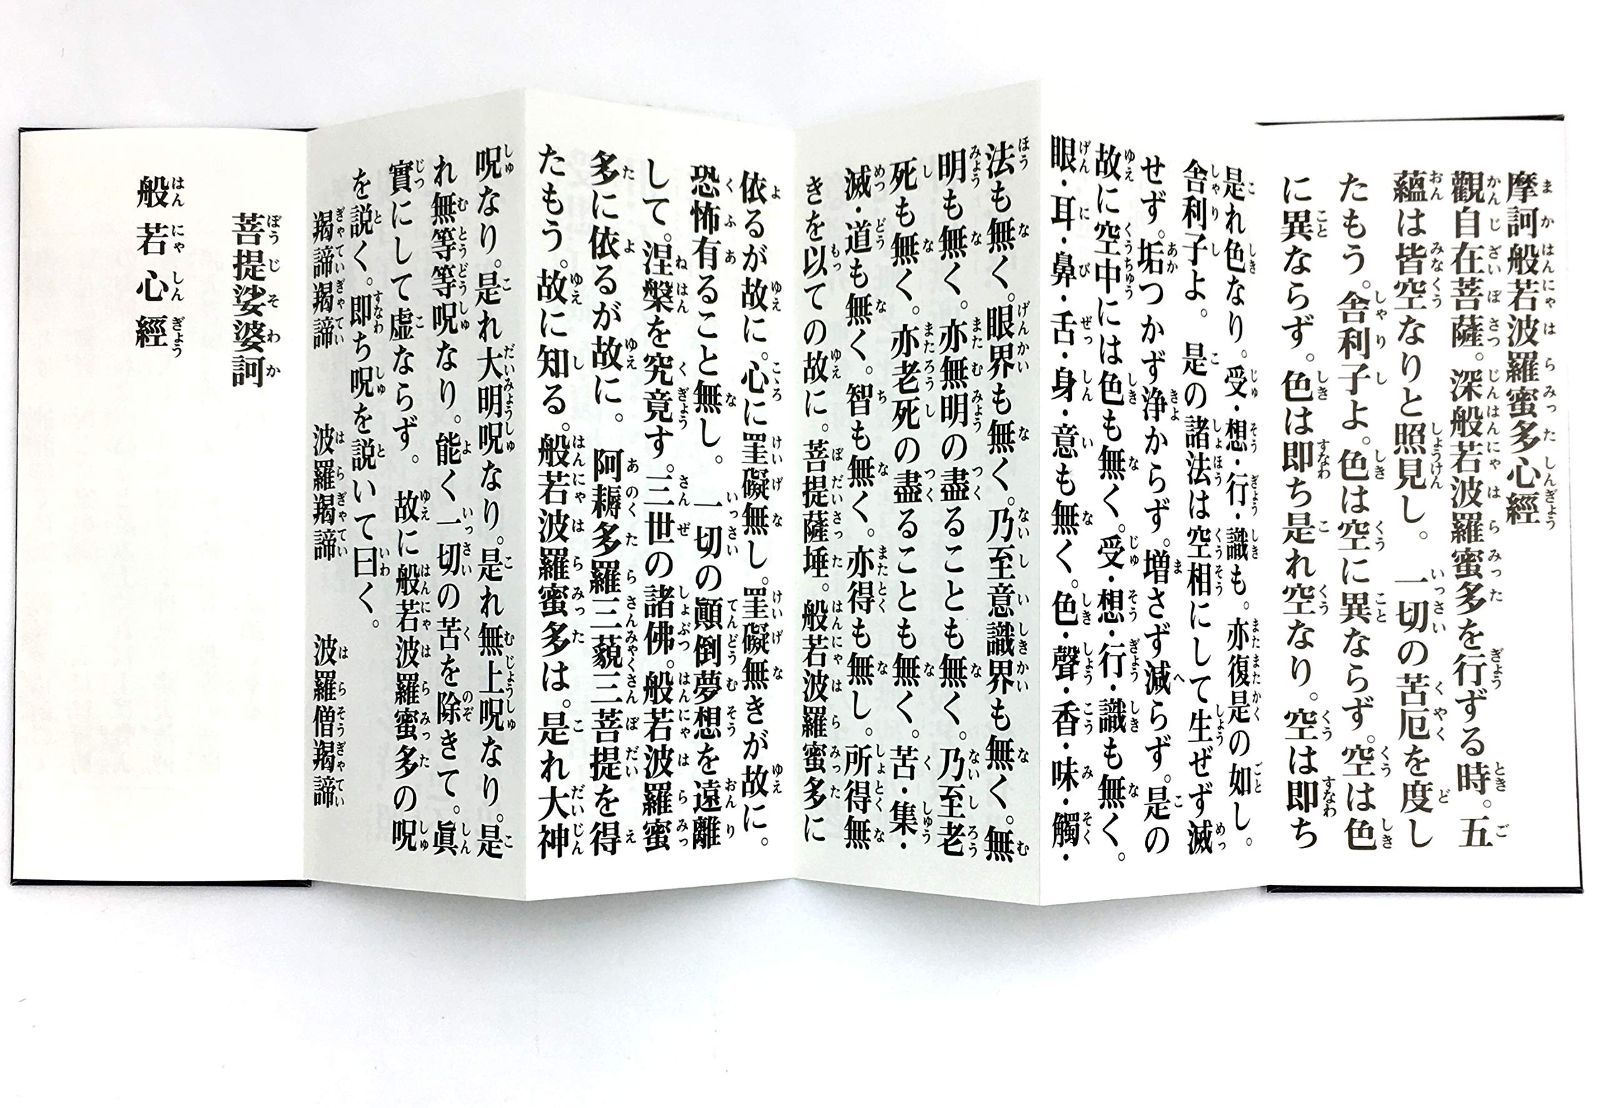 摩訶般若波羅蜜多心經
觀自在菩薩。深般若波羅蜜多を行ずる時。五
蘊は皆空なりと照見し。一切の苦厄を度し
たもう。舎利子よ。色は空に異ならず。空は色
に異ならず。色は即ち是れ空なり。空は即ち
是れ色なり。受・想・行・識も。亦復是の如し。
舎利子よ。是の諸法は空相にして生ぜず滅
せず。垢つかず浄からず。増さず減らず。是の
故に空中には色も無く。受・想・行・識も無く。
眼・耳・鼻・舌・身・意も無く。色・聲・香・味・觸・
法も無く。眼界も無く。乃至意識界も無く。無
明も無く。亦無明の盡ることも無く。乃至老
死も無く。亦老死の盡ることも無く。苦・集・
滅・道も無く。智も無く。亦得も無し。所得無
きを以ての故に。菩提薩埵。般若波羅蜜多に
依るが故に。心に罣礙無し。罣礙無きが故に。
恐怖有ること無し。一切の顛倒夢想を遠離
して。涅槃を究竟す。三世の諸佛。般若波羅蜜
多に依るが故に。阿耨多羅三藐三菩提を得
たもう。故に知る。般若波羅蜜多は。是れ大神
呪なり。是れ大明呪なり。是れ無上呪なり。是
れ無等等呪なり。能く一切の苦を除きて。眞
實にして虚ならず。故に般若波羅蜜多の呪
を説く。即ち呪を説いて曰く。
羯諦羯諦 波羅羯諦 波羅僧羯諦
菩提娑婆訶
般若心經